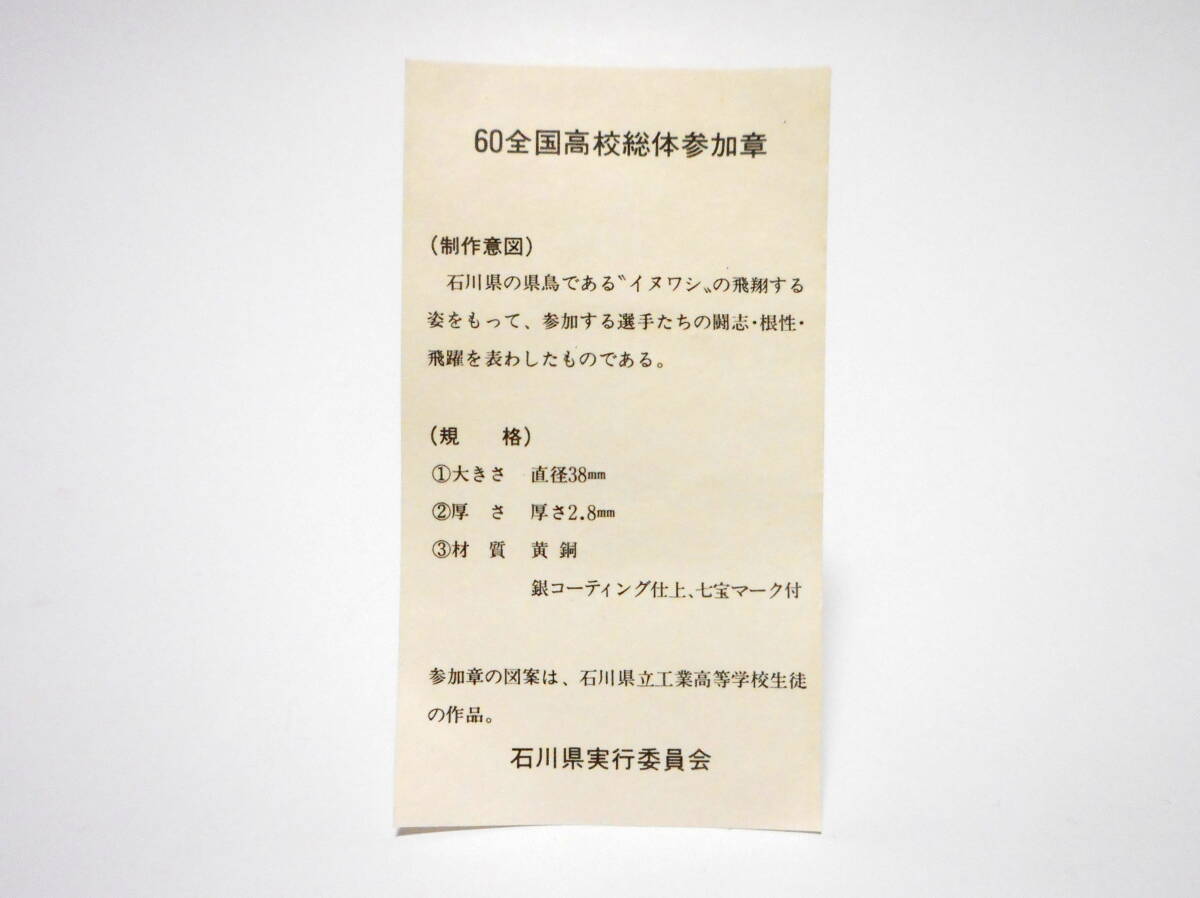 60全国高校総体参加章
(制作意図)
石川県の県鳥である〝イヌワシ〟の飛翔する
姿をもって、参加する選手たちの闘志・根性・
飛躍を表わしたものである。
(規　格)
①大きさ　直径38㎜
②厚　さ　厚さ2.8㎜
③材　質　黄 銅
銀コーティング仕上、七宝マーク付
参加章の図案は、石川県立工業高等学校生徒
の作品。
石川県実行委員会